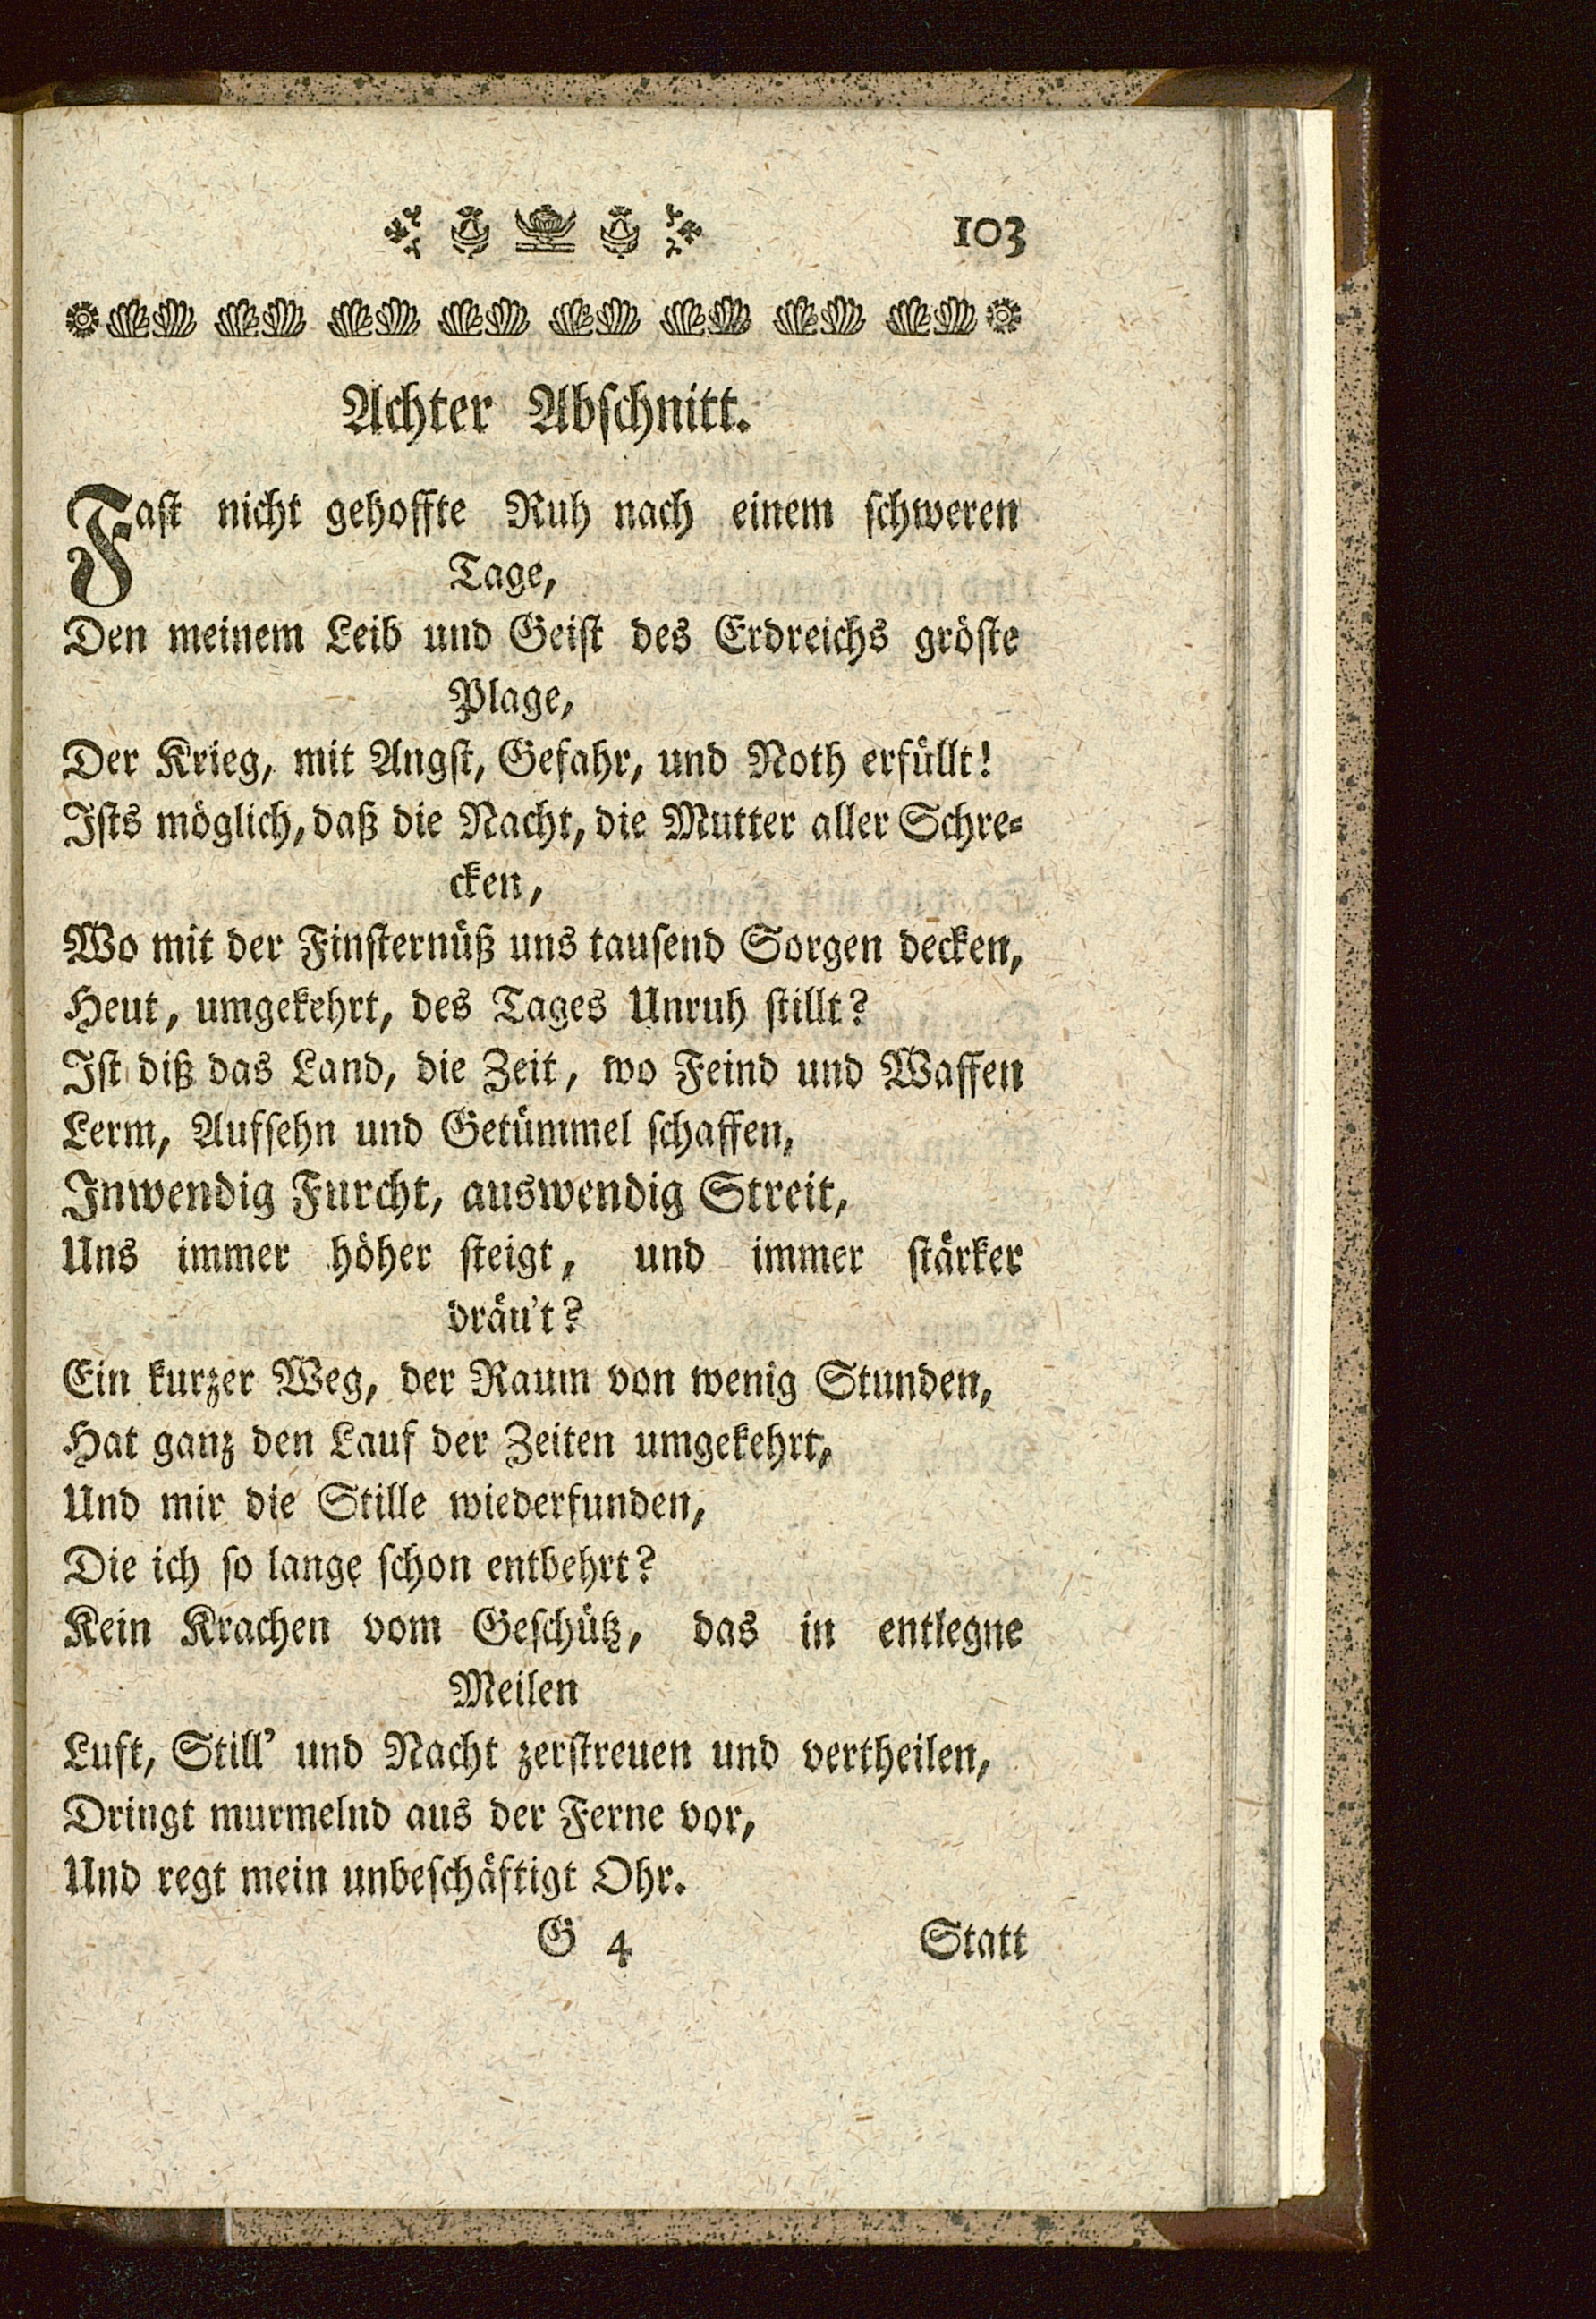 103
Achter Abschnitt.
Fast nicht gehoffte Ruh nach einem schweren
Tage,
Den meinem Leib und Geist des Erdreichs gröste
Plage,
Der Krieg, mit Angst, Gefahr, und Noth erfüllt!
Ists möglich, daß die Nacht, die Mutter aller Schre-
cken,
Wo mit der Finsternüß uns tausend Sorgen decken,
Heut, umgekehrt, des Tages Unruh stillt?
Ist diß das Land, die Zeit, wo Feind und Waffen
Lerm, Aufsehn und Getümmel schaffen,
Inwendig Furcht, auswendig Streit,
Uns immer höher steigt, und immer stärker
dräu't?
Ein kurzer Weg, der Raum von wenig Stunden,
Hat ganz den Lauf der Zeiten umgekehrt,
Und mir die Stille wiederfunden,
Die ich so lange schon entbehrt?
Kein Krachen vom Geschütz, das in entlegne
Meilen
Luft, Still' und Nacht zerstreuen und vertheilen,
Dringt murmelnd aus der Ferne vor,
Und regt mein unbeschäftigt Ohr.
G 4 Statt